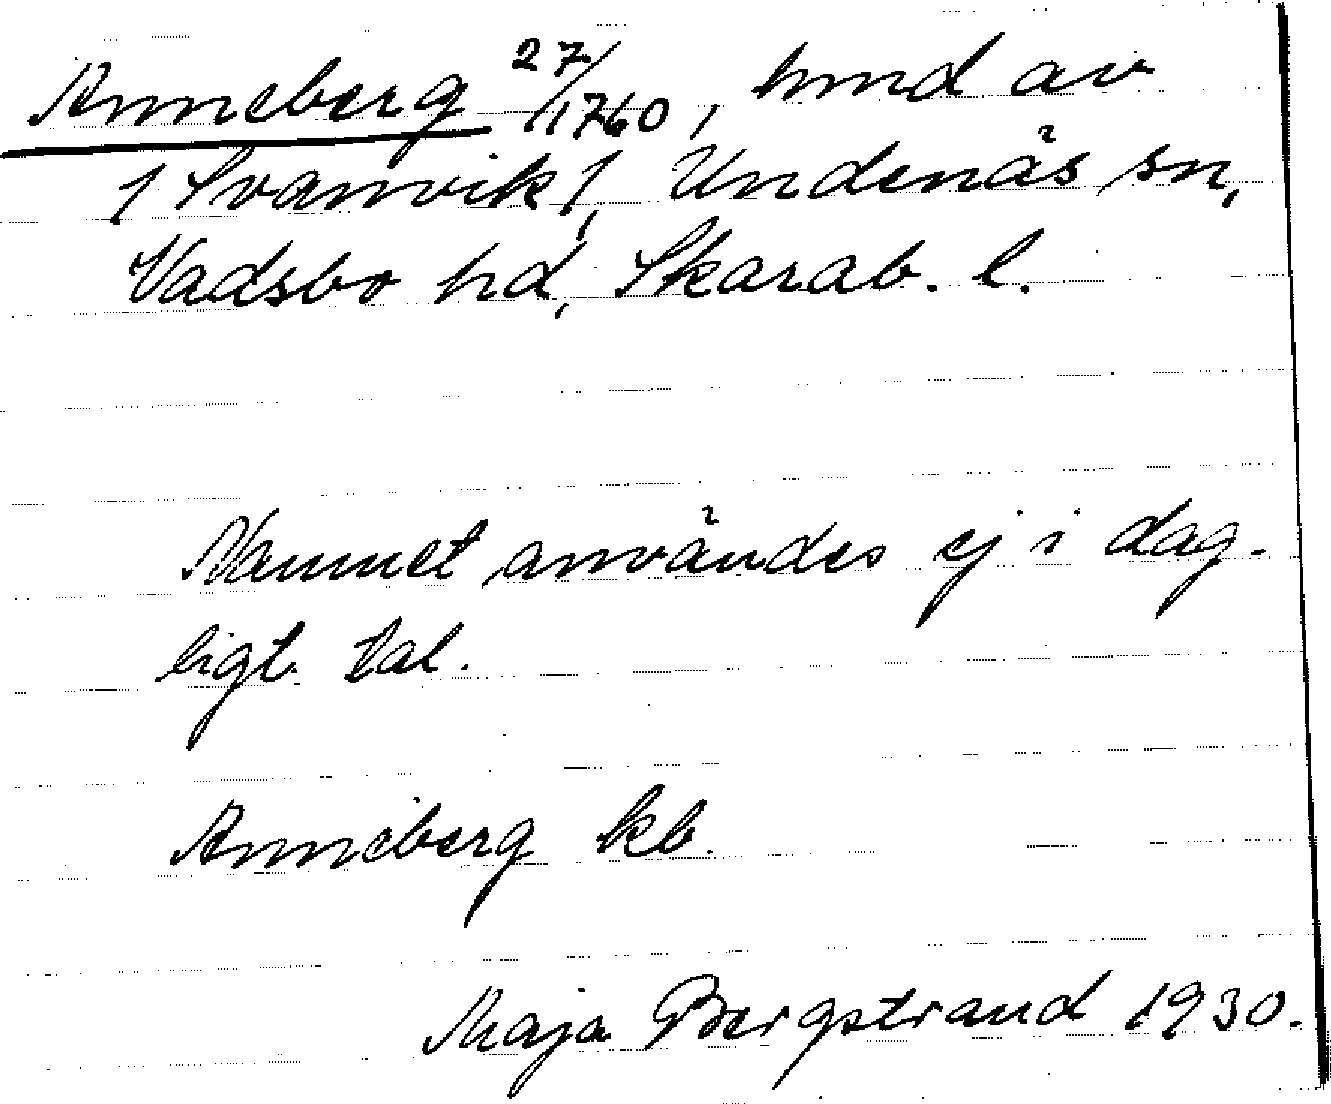 Anneberg 27/1760, hmd av
/ Svanvik /, Undenäs sn,
Vadsbo hd, Skarab. l.
Namnet användes ej i dag-
ligt tal.
Anneberg kb.
Maja Bergstrand 1930.